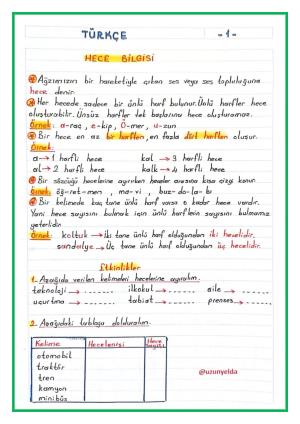 TÜRKÇE
-1-
HECE BİLGİSİ
Ağzımızın bir hareketiyle çıkan ses veya ses topluluğuna
hece denir.
Her hecede sadece bir ünlü harf bulunur. Ünlü harfler hece
oluşturabilir. Ünsüz harfler tek başlarına hece oluşturamaz.
Örnek: a-raç, e-kip, Ö-mer, u-zun
Bir hece en az bir harften, en fazla dört harften oluşur.
Örnek:
a → 1 harfli hece kal → 3 harfli hece
al → 2 harfli hece kalk → 4 harfli hece
Bir sözcüğü hecelerine ayırırken heceler arasına kısa çizgi konur.
Örnek: öğ-ret-men, ma-vi, buz-do-la-bı
Bir kelimede kaç tane ünlü harf varsa o kadar hece vardır.
Yani hece sayısını bulmak için ünlü harflerin sayısını bulmamız
yeterlidir.
Örnek: koltuk → İki tane ünlü harf olduğundan iki hecelidir.
sandalye → Üç tane ünlü harf olduğundan üç hecelidir.
Etkinlikler
1. Aşağıda verilen kelimeleri hecelerine ayıralım.
teknoloji → ------ ilkokul → ------ aile → ------
uçurtma → ------ tabiat → ------ prenses → ------
2. Aşağıdaki tabloyu dolduralım.
Kelime Hecelenişi Hece Sayısı
otomobil
traktör
tren
kamyon
minibüs
@uzunyelda